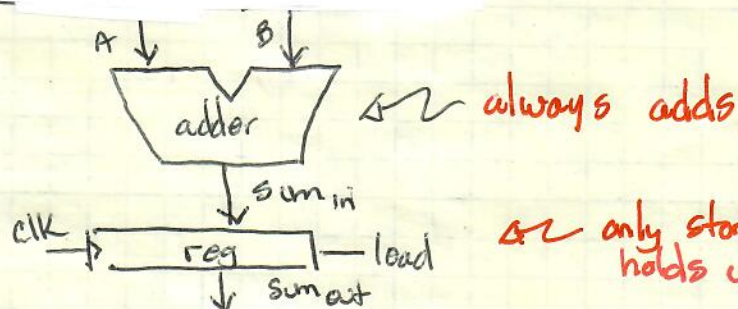 A B
adder
always adds
sum in
clk reg load
only
holds
sum out